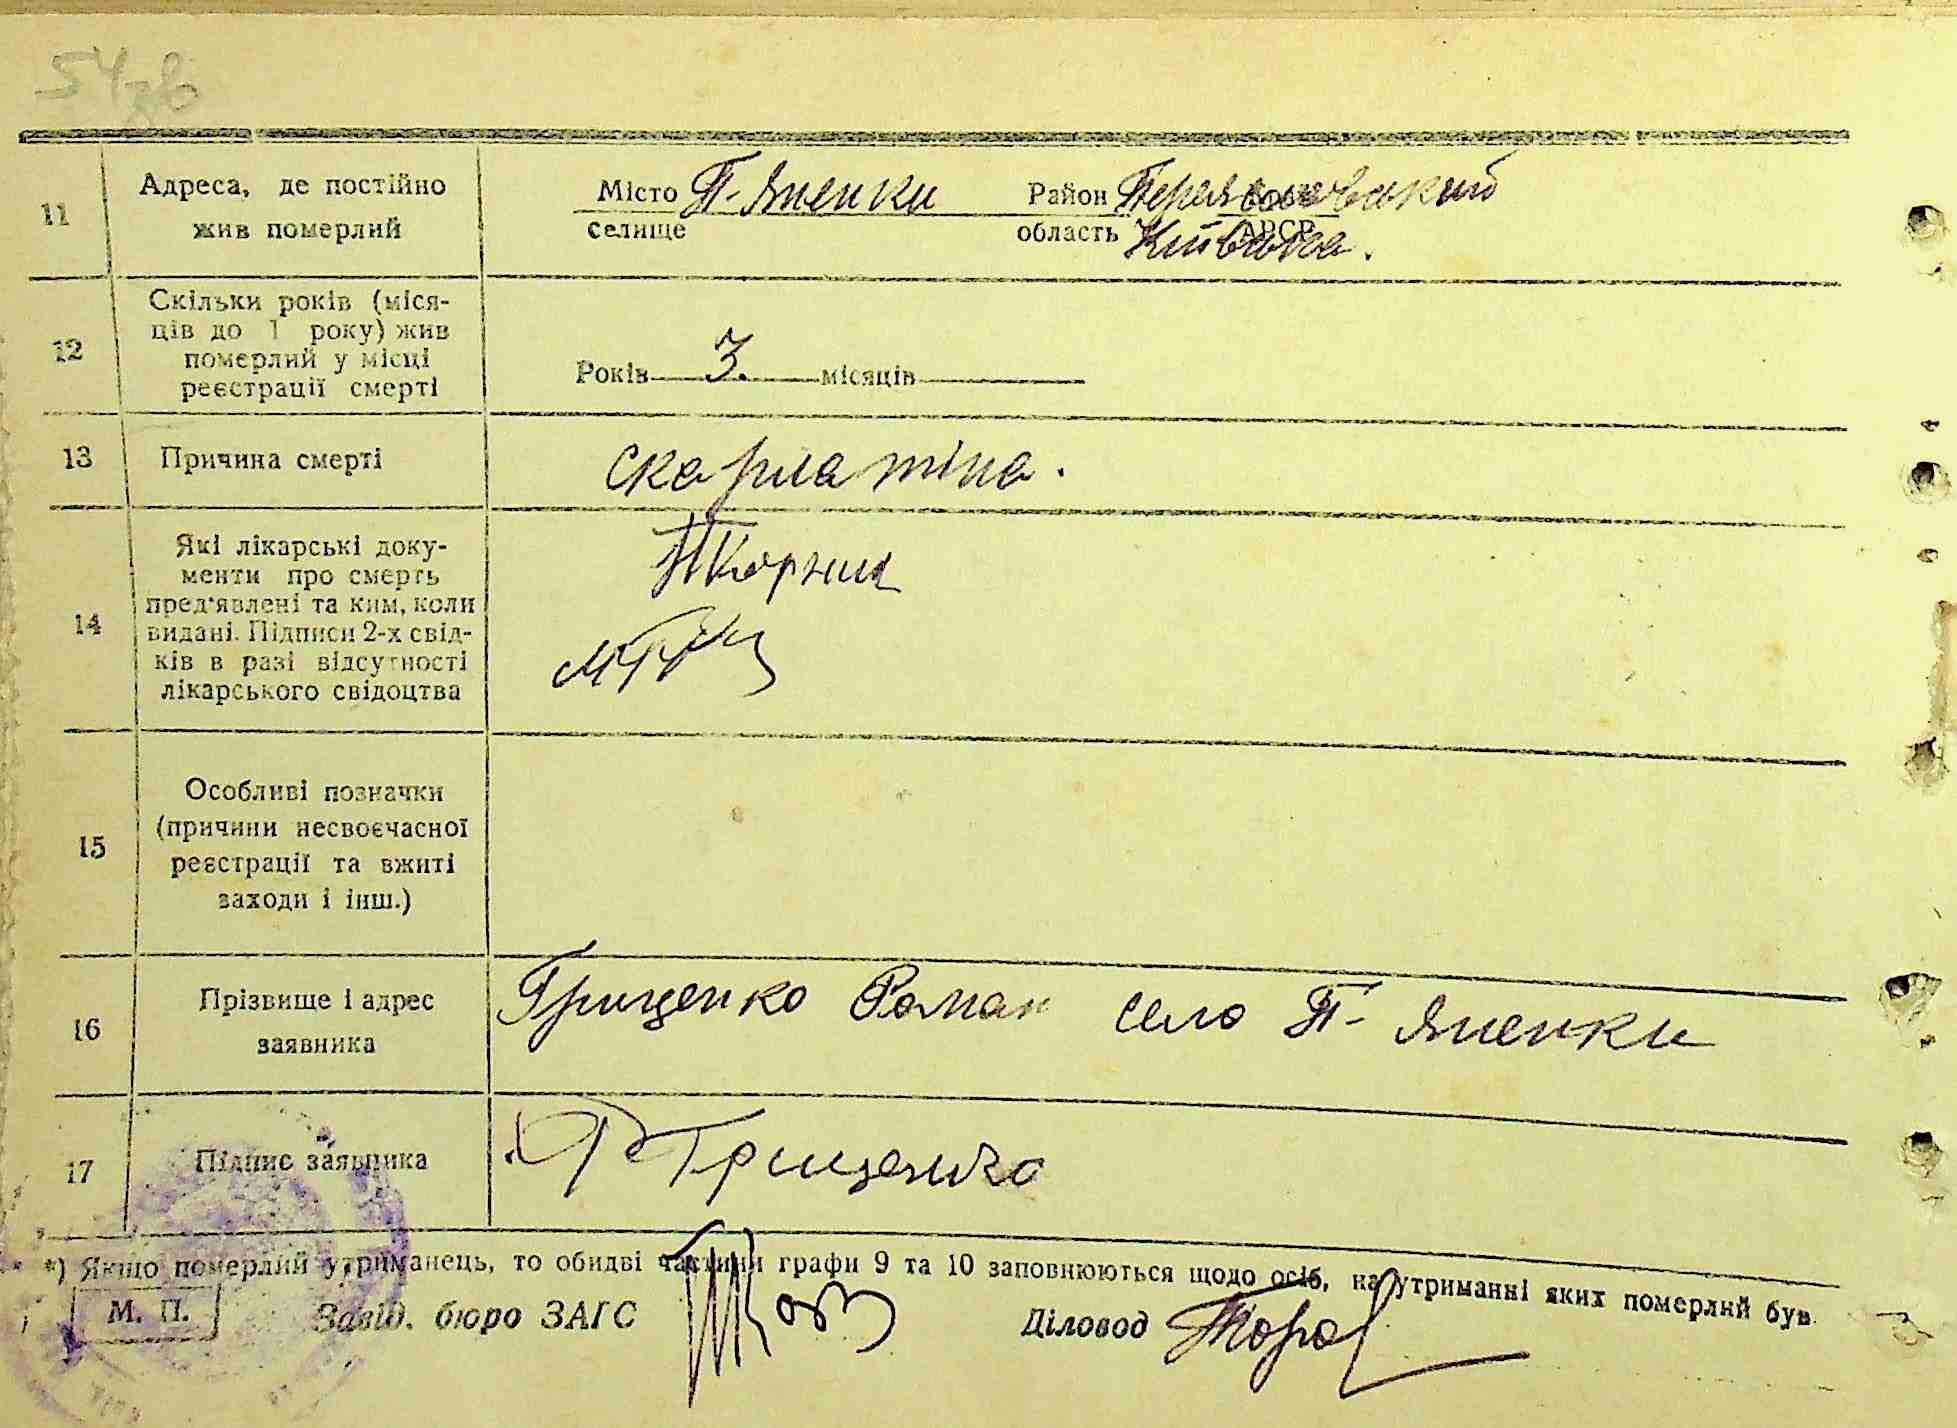 54зв
11 Адреса, де постійно жив померлий Місто селище П-Яненки Район Переяславський область АРСР Київська.
12 Скільки років (місяців до 1 року) жив померлий у місці реєстрації смерті Років 3. місяців
13 Причина смерті скарлатіна.
14 Які лікарські документи про смерть
пред'явлені та ким, коли
видані. Підписи 2-х свідків в разі відсутності
лікарського свідоцтва
15 Особливі позначки
(причини несвоєчасної
реєстрації та вжиті
заходи і інш.)
16 Прізвище і адрес заявника Грищенко Роман село П-Яненки
17 Підпис заявника Р Грищенко
*) Якщо померлий утриманець, то обидві частини графи 9 та 10 заповнюються щодо осіб, на утриманні яких померлий був
М. П. Завід. бюро ЗАГС Діловод